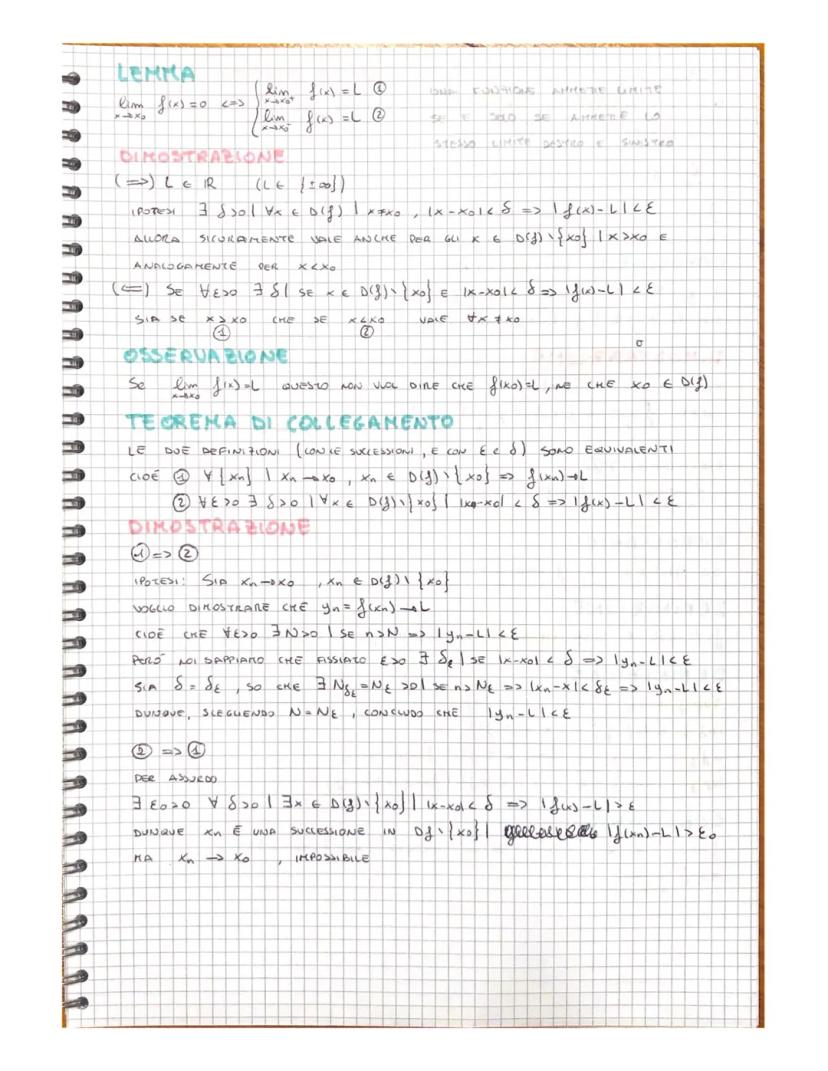 LEMMA
lim x→x₀ f(x)=0 <=> { lim x→x₀⁺ f(x)=L ①
lim x→x₀⁻ f(x)=L ②
UNA FUNZIONE AMMETTE LIMITE
SE E SOLO SE AMMETTE LO
STESSO LIMITE DESTRO E SINISTRO
DIMOSTRAZIONE
(=>) L ∈ ℝ (L ∈ {±∞})
IPOTESI ∃ δ>0 | ∀x ∈ D(f) | x≠x₀, |x-x₀|< δ => |f(x)-L|<ε
ALLORA SICURAMENTE VALE ANCHE PER GLI x ∈ D(f)\{x₀} | x>x₀ E
ANALOGAMENTE PER x<x₀
(<=) SE ∀ε>0 ∃ δ | SE x ∈ D(f)\{x₀} E |x-x₀|< δ => |f(x)-L| < ε
SIA SE x>x₀ CHE SE x<x₀ VALE ∀x ≠ x₀
① ②
OSSERVAZIONE
SE lim x→x₀ f(x)=L QUESTO NON VUOL DIRE CHE f(x₀)=L, NE CHE x₀ ∈ D(f)
TEOREMA DI COLLEGAMENTO
LE DUE DEFINIZIONI (CON LE SUCCESSIONI, E CON ε E δ) SONO EQUIVALENTI
CIOÈ ① ∀{xn} | xn→x₀, xn ∈ D(f)\{x₀} => f(xn)→L
② ∀ε>0 ∃ δ>0 | ∀x ∈ D(f)\{x₀} | |x-x₀| < δ => |f(x)-L| < ε
DIMOSTRAZIONE
① => ②
IPOTESI: SIA xn→x₀, xn ∈ D(f)\{x₀}
VOGLIO DIMOSTRARE CHE yn= f(xn)→L
CIOÈ CHE ∀ε>0 ∃N>0 | SE n>N => |yn-L|<ε
PERÒ NOI SAPPIAMO CHE FISSIATO ε>0 ∃ δε | SE |x-x₀| < δ => |yn-L|<ε
SIA δ= δε, SO CHE ∃ Nδε=Nε >0 | SE n> Nε => |xn-x|< δε => |yn-L|<ε
DUNQUE, SLEGLIENDO N=Nε, CONCLUDO CHE |yn-L|<ε
② => ①
PER ASSURDO
∃ ε₀>0 ∀ δ>0 | ∃x ∈ D(f)\{x₀} | |x-x₀|< δ => |f(x)-L|>ε
DUNQUE xn È UNA SUCCESSIONE IN Df\{x₀} | |f(xn)-L|>ε₀
MA xn → x₀, IMPOSSIBILE